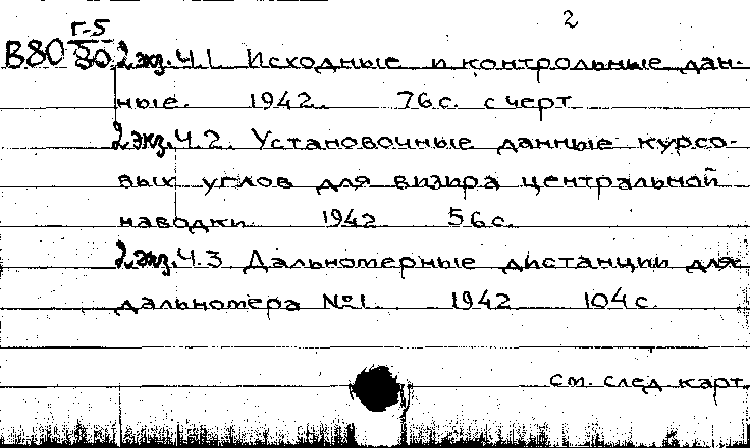 2
Г-5
В80 30 2 экз. Ч.1. Исходные и контрольные дан-
ные. 1942. 76 с. с черт.
2 экз. Ч.2. Установочные данные курсо-
вых углов для визира центральной
наводки. 1942 56 с.
2 экз. Ч.3 Дальномерные дистанции для
дальномера №1. 1942 104 с.
см. след карт.